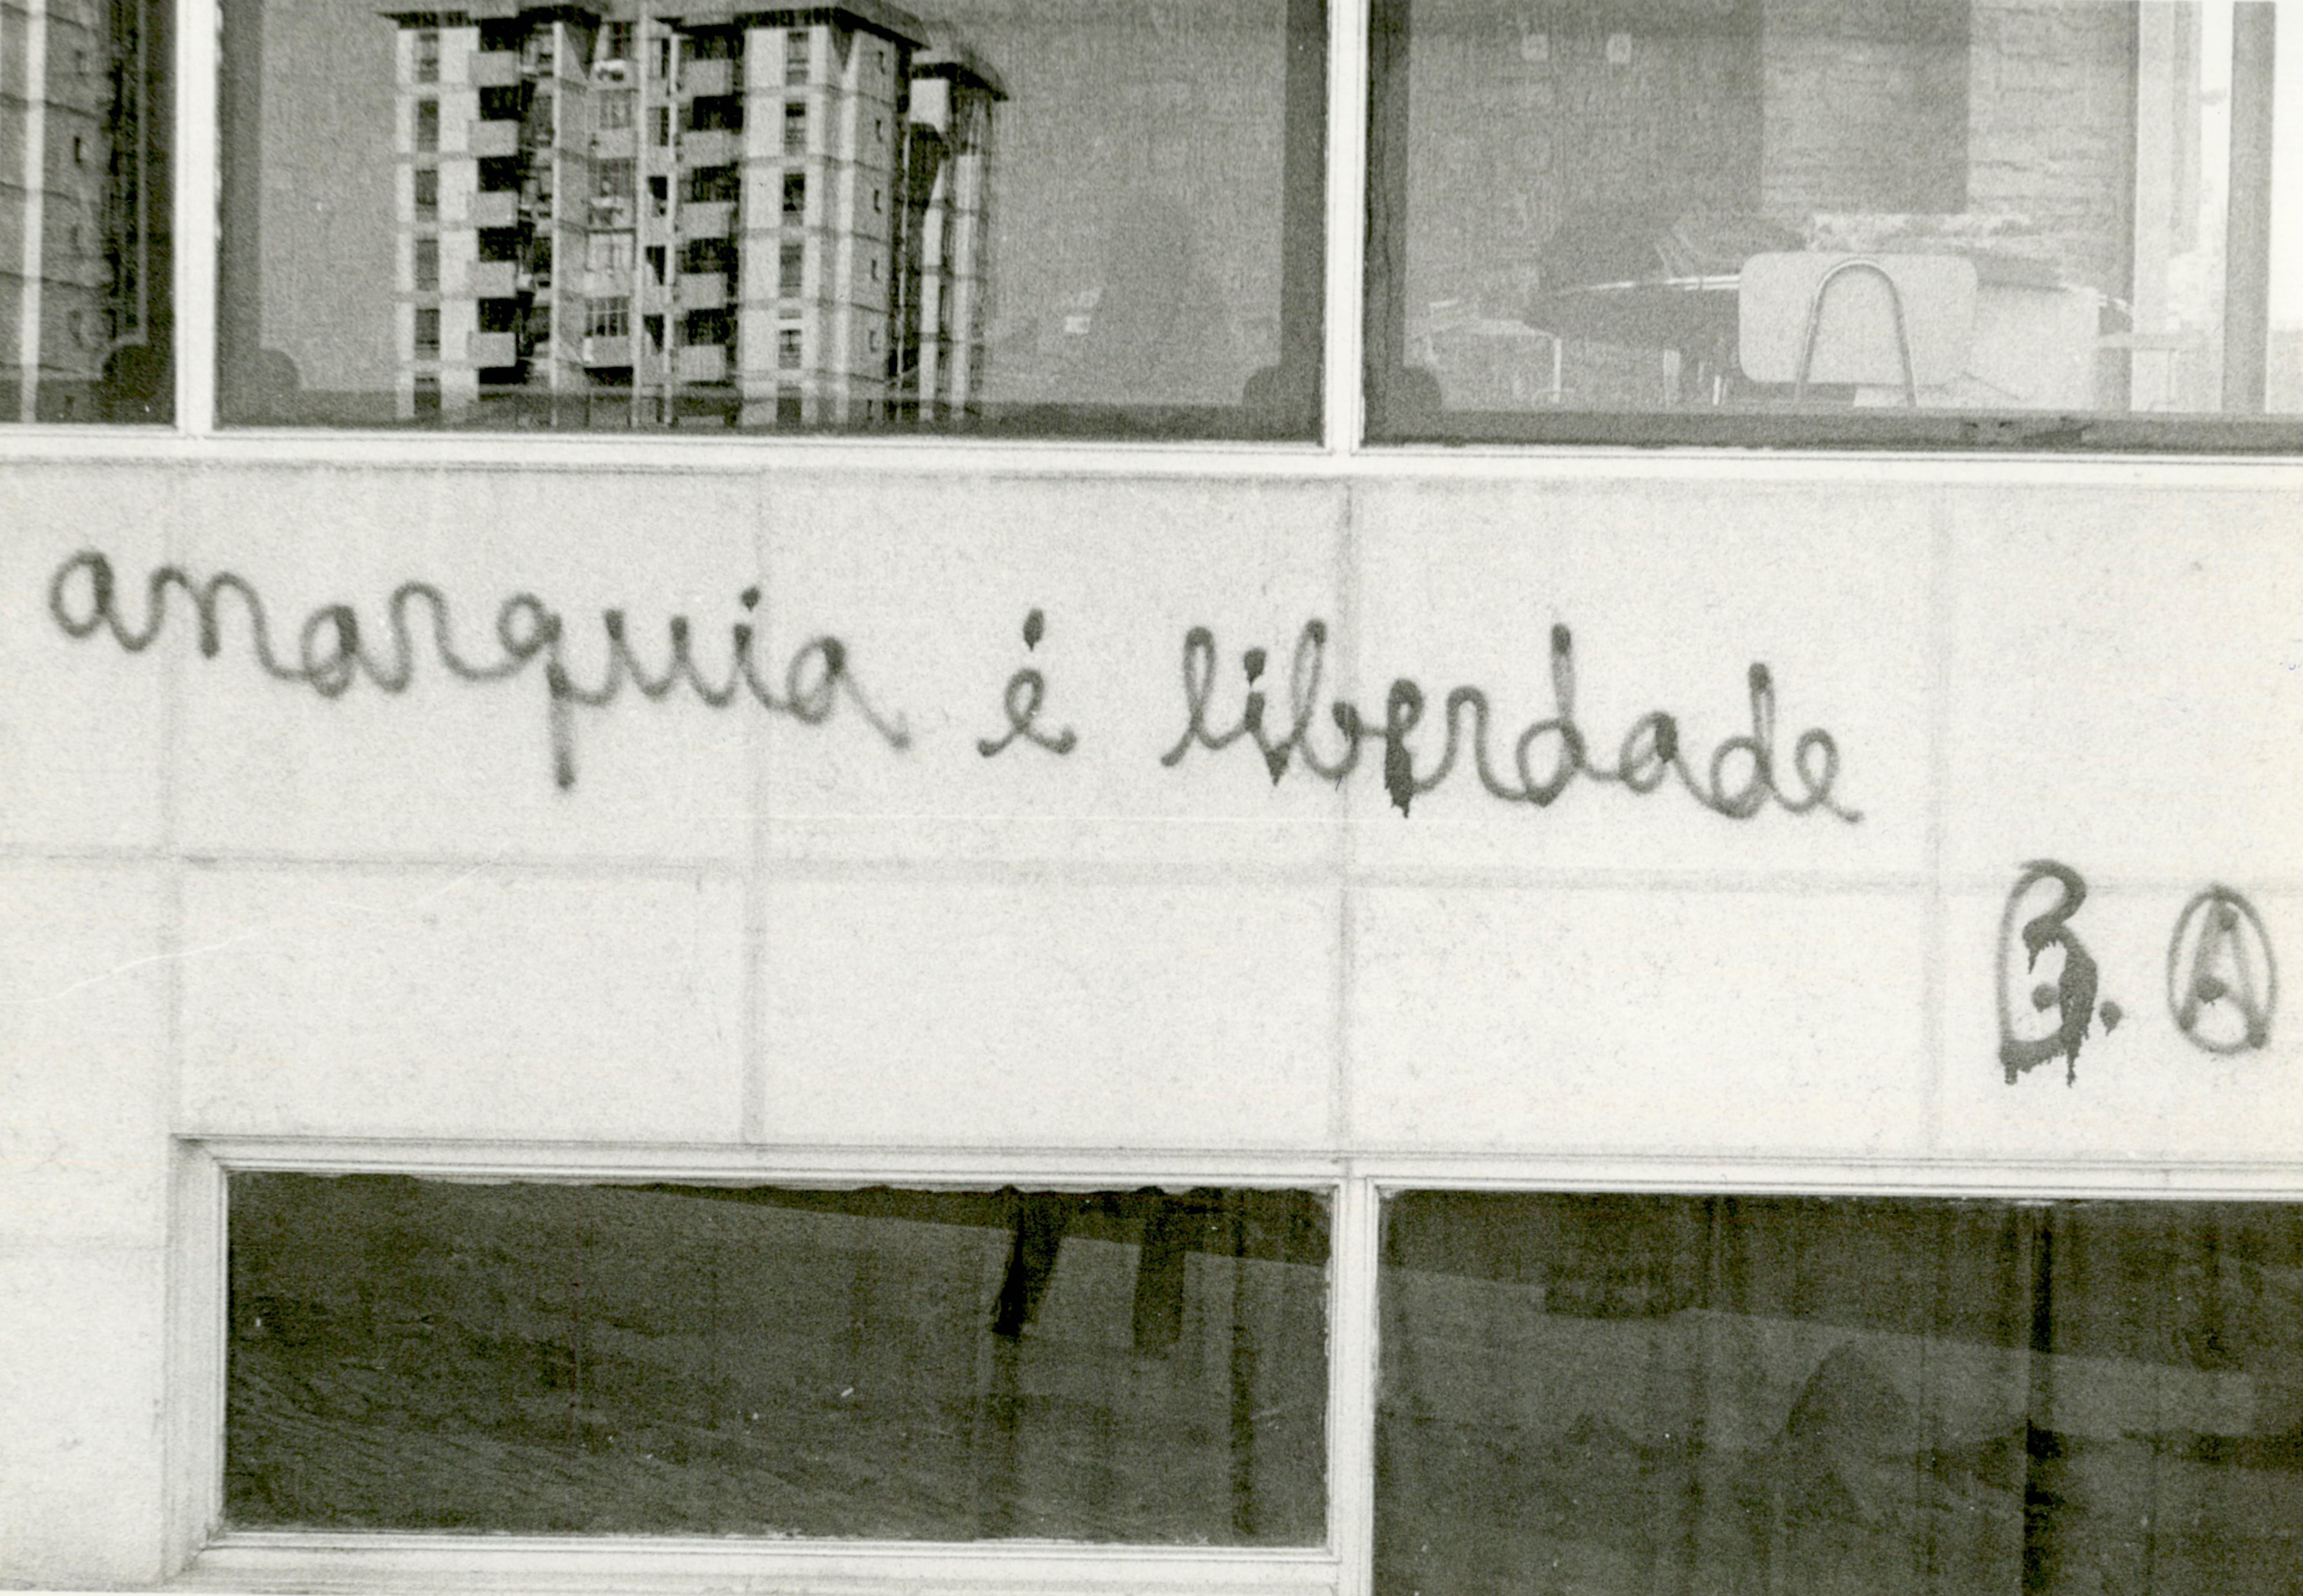 anarquia é liberdade
B. A